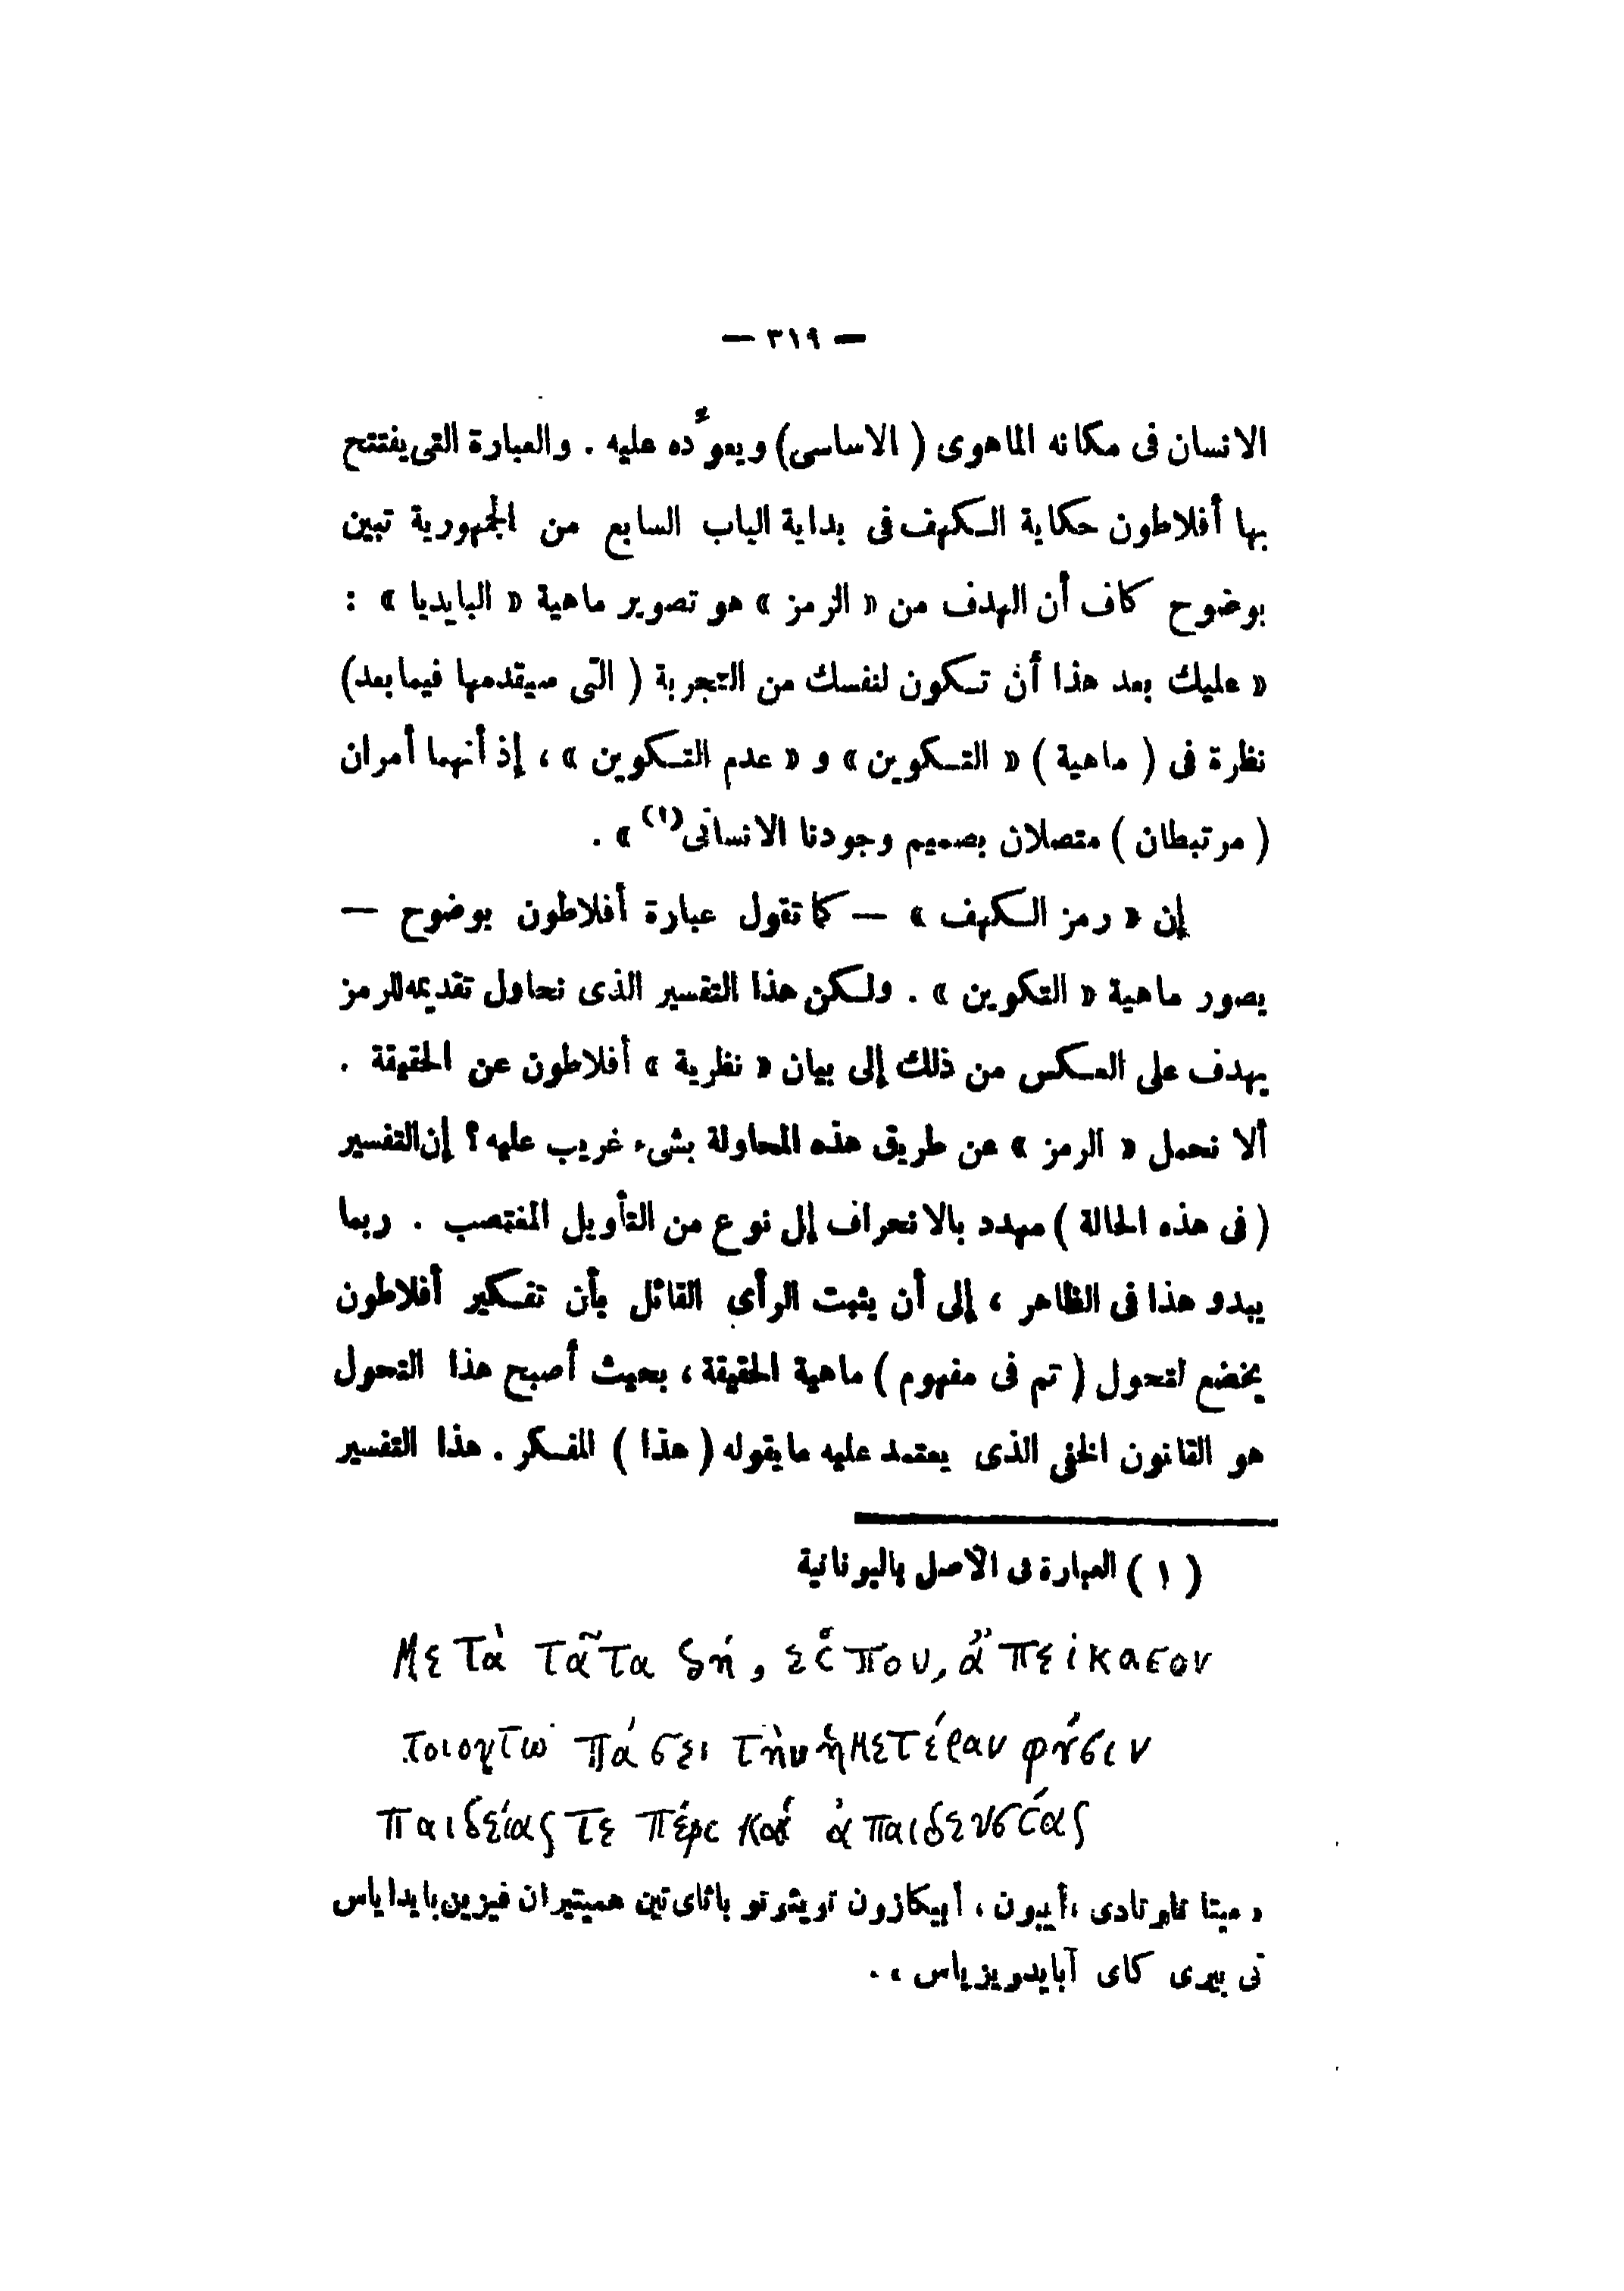 — ٣١٩ —
الانسان فى مكانه الماهوى ( الاساسى ) ويعوِّده عليه . والعبارة التى يفتتح
بها أفلاطون حكاية الكهف فى بداية الباب السابع من الجمهورية تبين
بوضوح كاف أن الهدف من « الرمز » هو تصوير ماهية « البايديا » :
« عليك بعد هذا أن تكون لنفسك من التجربة ( التى سيقدمها فيما بعد )
نظرة فى ( ماهية ) « التكوين » و « عدم التكوين » ، إذ أنهما أمران
( مرتبطان ) متصلان بصميم وجودنا الانسانى(١) » .
إن « رمز الكهف » — كما تقول عبارة أفلاطون بوضوح —
يصور ماهية « التكوين » . ولكن هذا التفسير الذى نحاول تقديمه للرمز
يهدف على العكس من ذلك إلى بيان « نظرية » أفلاطون عن الحقيقة .
ألا نحمل « الرمز » عن طريق هذه المحاولة بشىء غريب عليه ؟ إن التفسير
( فى هذه الحالة ) مهدد بالانحراف إلى نوع من التأويل المغتصب . ربما
يبدو هذا فى الظاهر ، إلى أن يثبت الرأى القائل بأن تفكير أفلاطون
يخضع لتحول ( تم فى مفهوم ) ماهية الحقيقة ، بحيث أصبح هذا التحول
هو القانون الخفى الذى يعتمد عليه ما يقوله ( هذا ) المفكر . هذا التفسير
( ١ ) العبارة فى الأصل باليونانية
Μετὰ ταῦτα δή, εἶπον, ἀπείκασον
τοιούτῳ πάθει τὴν ἡμετέραν φύσιν
παιδείας τε πέρι καὶ ἀπαιδευσίας
« ميتا تاوتادى ، أيبون ، أبيكازون تويثوتو باثاى تين هميتيران فيزين بايداياس
تى بيرى كاى آبايدويزياس » .